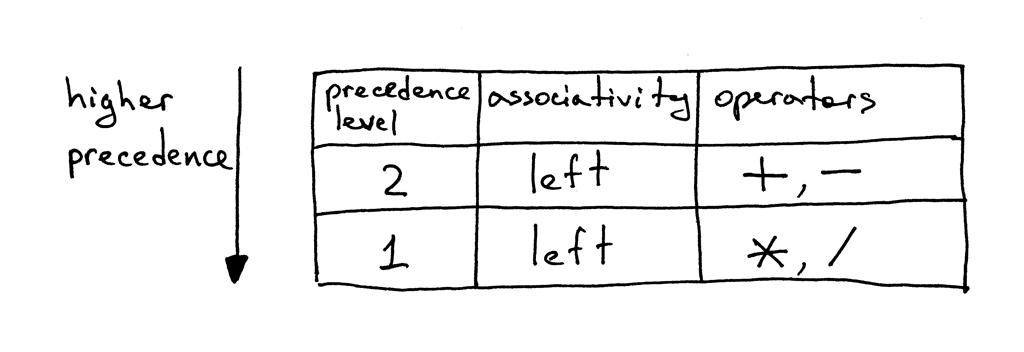 higher
precedence
precedence level | associativity | operators
2 | left | +, -
1 | left | *, /